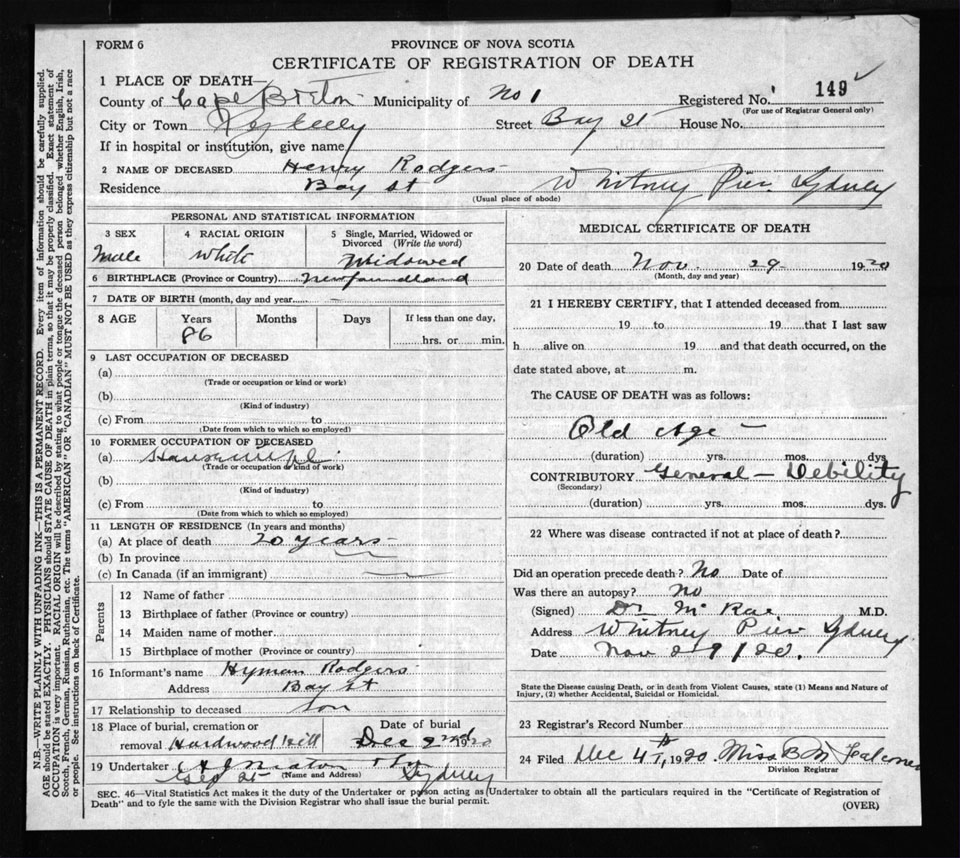 FORM 6
PROVINCE OF NOVA SCOTIA
CERTIFICATE OF REGISTRATION OF DEATH
1 PLACE OF DEATH—
County of Cape Breton Municipality of No 1 Registered No. 149
(For use of Registrar General only)
City or Town Street Bay St House No.
If in hospital or institution, give name
2 NAME OF DECEASED Henry Rodgers
Residence Bay St Whitney Pier Sydney
(Usual place of abode)
PERSONAL AND STATISTICAL INFORMATION
3 SEX Male
4 RACIAL ORIGIN White
5 Single, Married, Widowed or Divorced (Write the word) Widowed
6 BIRTHPLACE (Province or Country) Newfoundland
7 DATE OF BIRTH (month, day and year)
8 AGE Years Months Days If less than one day,
86 hrs. or min.
9 LAST OCCUPATION OF DECEASED
(a)
(Trade or occupation or kind or work)
(b)
(Kind of industry)
(c) From to
(Date from which to which so employed)
10 FORMER OCCUPATION OF DECEASED
(a)
(Trade or occupation or kind of work)
(b)
(Kind of industry)
(c) From to
(Date from which to which so employed)
11 LENGTH OF RESIDENCE (In years and months)
(a) At place of death 20 years
(b) In province
(c) In Canada (if an immigrant)
Parents
12 Name of father
13 Birthplace of father (Province or country)
14 Maiden name of mother
15 Birthplace of mother (Province or country)
16 Informant's name Hyman Rodgers
Address Bay St
17 Relationship to deceased Son
18 Place of burial, cremation or removal Hardwood Hill
Date of burial Dec 2nd 1920
19 Undertaker
(Name and Address) Sydney
MEDICAL CERTIFICATE OF DEATH
20 Date of death Nov. 29 1920
(Month, day and year)
21 I HEREBY CERTIFY, that I attended deceased from
19 to 19 that I last saw
h alive on 19 and that death occurred, on the
date stated above, at m.
The CAUSE OF DEATH was as follows:
Old Age
(duration) yrs. mos. dys.
CONTRIBUTORY General Debility
(Secondary)
(duration) yrs. mos. dys.
22 Where was disease contracted if not at place of death?
Did an operation precede death? No Date of
Was there an autopsy? No
(Signed) Dr McRae M.D.
Address Whitney Pier Sydney
Date Nov 29/20.
State the Disease causing Death, or in death from Violent Causes, state (1) Means and Nature of
Injury, (2) whether Accidental, Suicidal or Homicidal.
23 Registrar's Record Number
24 Filed Dec 4th, 1920 Miss B M Falconer
Division Registrar
SEC. 46—Vital Statistics Act makes it the duty of the Undertaker or person acting as Undertaker to obtain all the particulars required in the "Certificate of Registration of
Death" and to fyle the same with the Division Registrar who shall issue the burial permit.
(OVER)
N.B.—WRITE PLAINLY WITH UNFADING INK—THIS IS A PERMANENT RECORD. Every item of information should be carefully supplied.
AGE should be stated EXACTLY. PHYSICIANS should STATE CAUSE OF DEATH in plain terms, so that it may be properly classified. Exact statement of
OCCUPATION is very important. RACIAL ORIGIN will be described by stating to what people or tongue the deceased person belonged whether English, Irish,
Scotch, French, German, Russian, Ruthenian, etc. The terms "AMERICAN" OR "CANADIAN" MUST NOT BE USED as they express citizenship but not a race
or people. See instructions on back of Certificate.